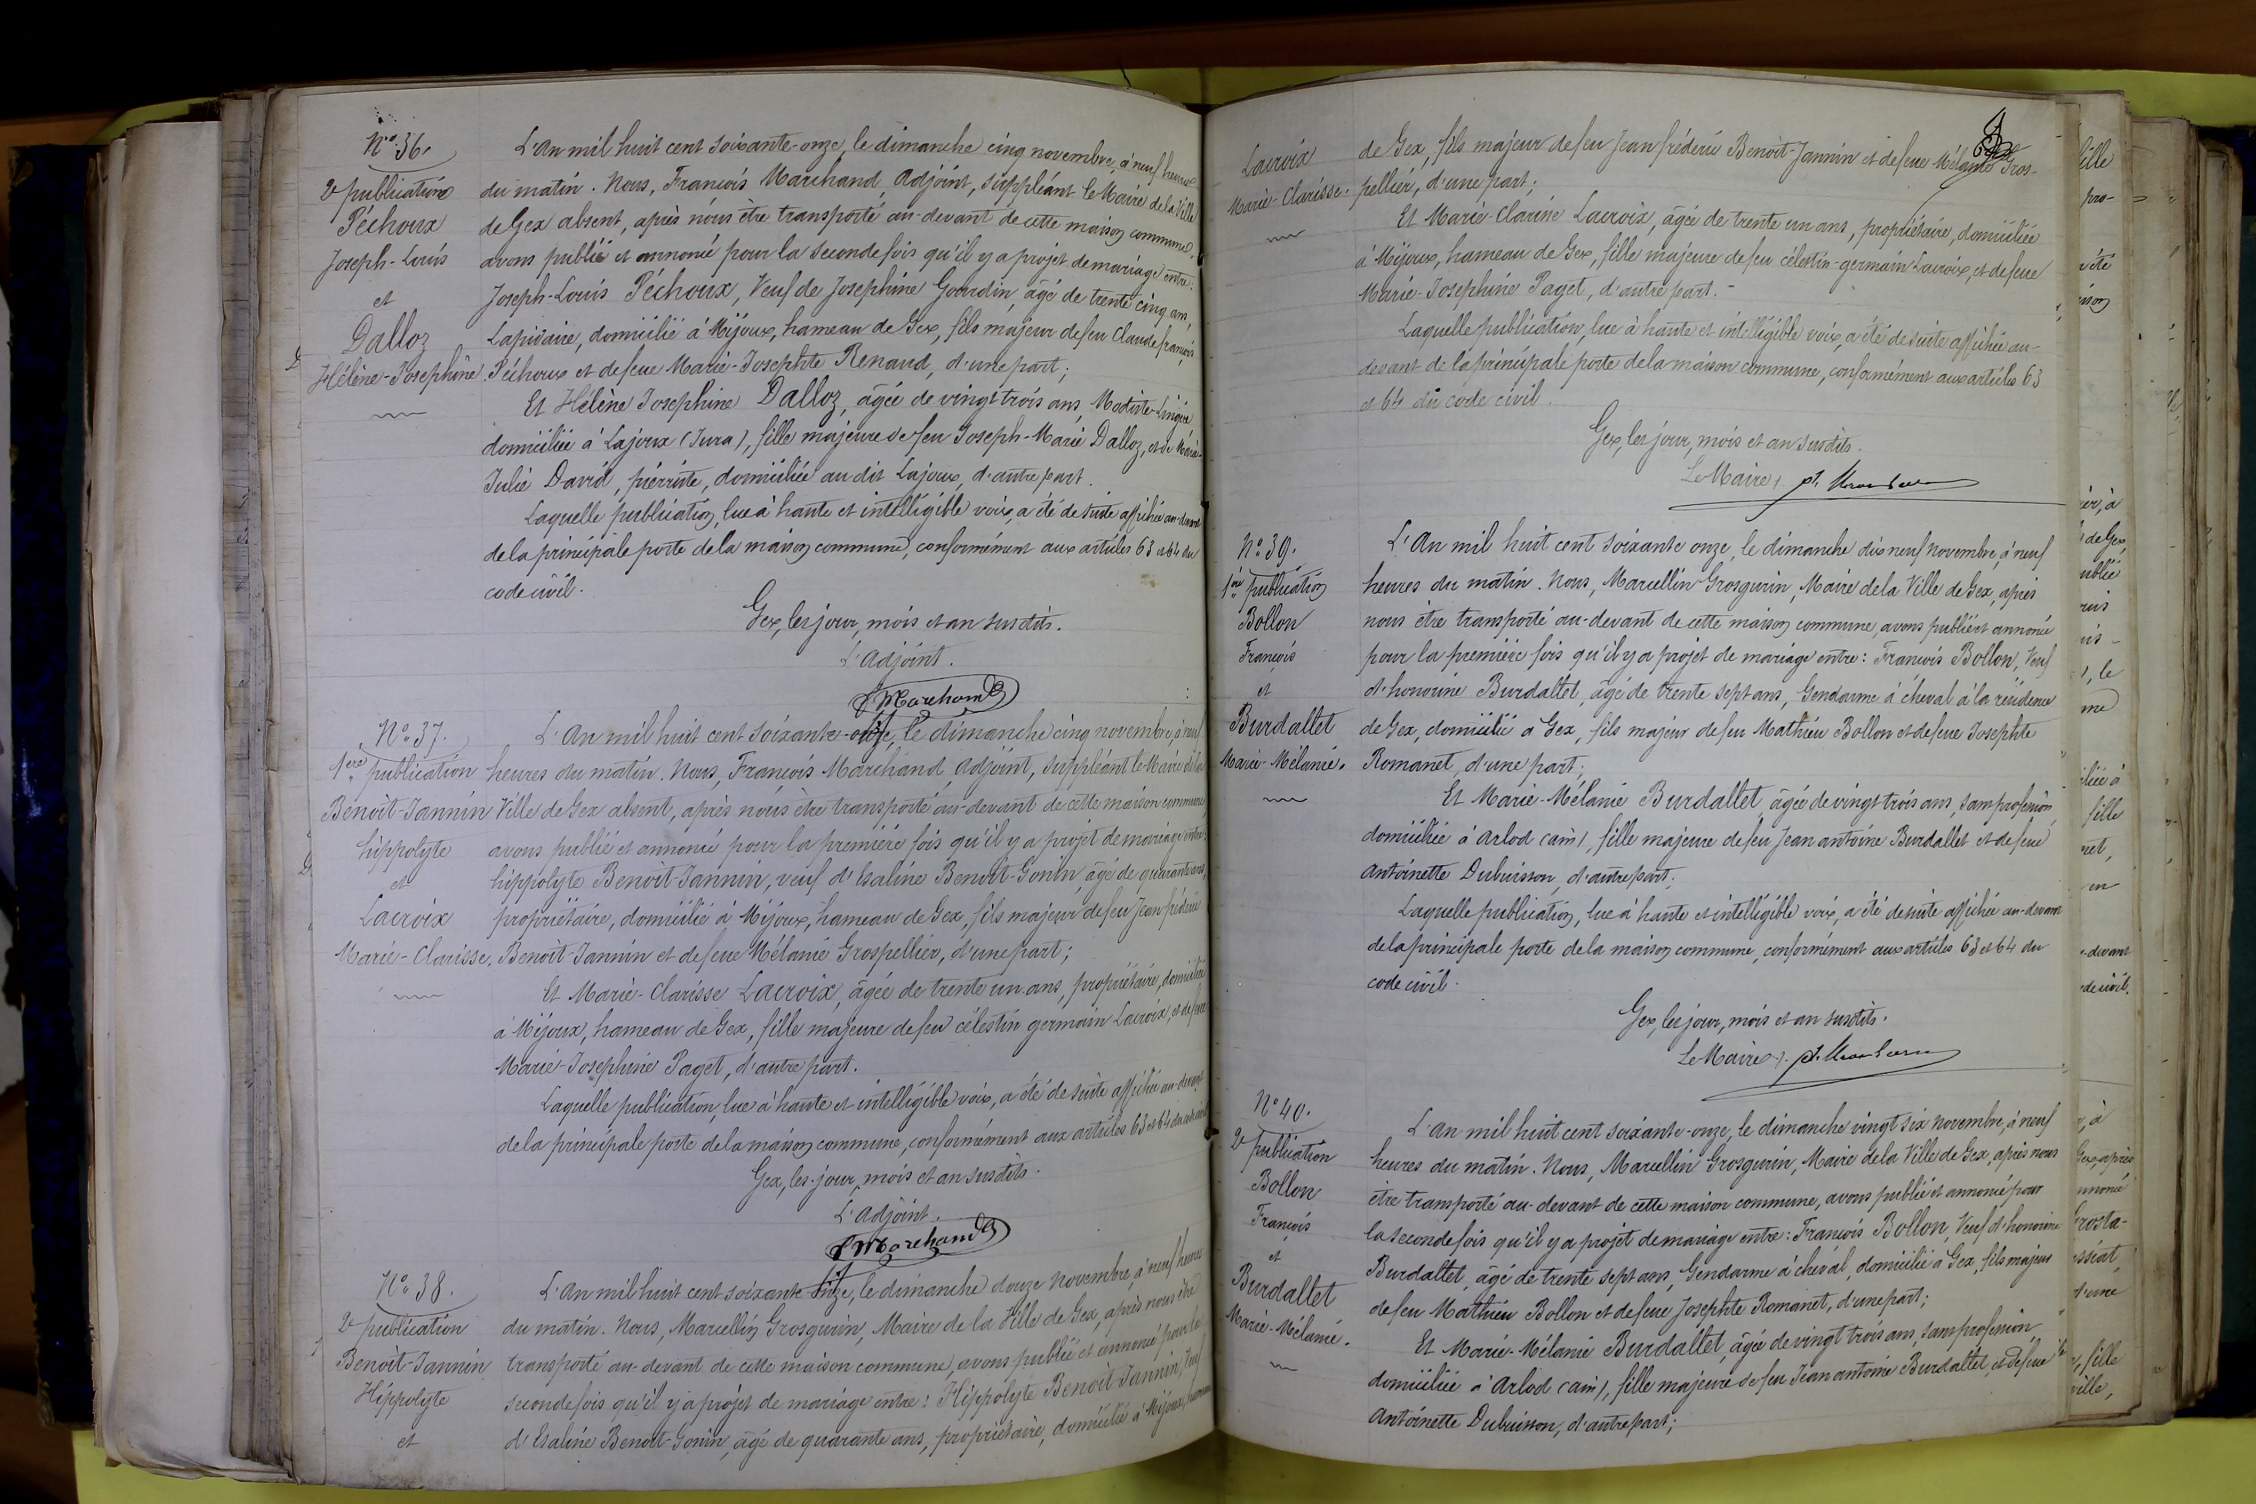 N° 36.
2e publication
Péchoux
Joseph-Louis
et
Dalloz
Hélène-Josephine.
L'An mil huit cent soixante-onze, le dimanche cinq novembre, à neuf heures
du matin. Nous, François Marchand, Adjoint, suppléant le Maire de la Ville
de Gex absent, après nous être transporté au-devant de cette maison commune,
avons publié et annoncé pour la seconde fois qu'il y a projet de mariage entre:
Joseph-Louis Péchoux, Veuf de Josephine Gourdin, âgé de trente cinq ans,
Lapidaire, domicilié à Mijoux, hameau de Gex, fils majeur de feu Claude françois
Péchoux et de feue Marie-Josephte Renaud, d'une part;
Et Hélène Josephine Dalloz, âgée de vingt trois ans, Modiste-Lingère
domiciliée à Lajoux (Jura), fille majeure de feu Joseph-Marie Dalloz, et de Marie-
Julie David, pierriste, domiciliée au dit Lajoux, d'autre part.
Laquelle publication, lue à haute et intelligible voix, a été de suite affichée au-devant
de la principale porte de la maison commune, conformément aux articles 63 et 64 du
code civil.
Gex, les jour, mois et an susdits.
L'Adjoint.
f Marchand
N° 37.
1ère publication
Benoit-Jannin
hippolyte
et
Lacroix
Marie-Clarisse.
L'An mil huit cent soixante-onze, le dimanche cinq novembre, à neuf
heures du matin. Nous, François Marchand, Adjoint, suppléant le Maire de la
Ville de Gex absent, après nous être transporté au-devant de cette maison commune,
avons publié et annoncé pour la première fois qu'il y a projet de mariage entre:
hippolyte Benoit-Jannin, veuf d'Esaline Benoit-Gonin, âgé de quarante ans,
propriétaire, domicilié à Mijoux, hameau de Gex, fils majeur de feu Jean frédéric
Benoit-Jannin et de feue Mélanie Grospellier, d'une part;
Et Marie-Clarisse Lacroix, âgée de trente un ans, propriétaire, domiciliée
à Mijoux, hameau de Gex, fille majeure de feu célestin germain Lacroix, et de feue
Marie-Josephine Paget, d'autre part.
Laquelle publication, lue à haute et intelligible voix, a été de suite affichée au-devant
de la principale porte de la maison commune, conformément aux articles 63 et 64 du code civil
Gex, les jour, mois et an susdits.
L'Adjoint.
f Marchand
N° 38.
2e publication
Benoit-Jannin
Hippolyte
et
L'An mil huit cent soixante onze, le dimanche douze novembre, à neuf heures
du matin. Nous, Marcellin Grosgurin, Maire de la Ville de Gex, après nous être
transporté au-devant de cette maison commune, avons publié et annoncé pour la
seconde fois qu'il y a projet de mariage entre: Hippolyte Benoit Jannin, Veuf
d'Esaline Benoit-Gonin, âgé de quarante ans, propriétaire, domicilié à Mijoux, hameau
Lacroix
Marie-Clarisse.
de Gex, fils majeur de feu Jean frédéric Benoit-Jannin et de feue Mélanie Gros-
pellier, d'une part;
Et Marie-Clarisse Lacroix, âgée de trente un ans, propriétaire, domiciliée
à Mijoux, hameau de Gex, fille majeure de feu célestin-germain Lacroix, et de feue
Marie-Josephine Paget, d'autre part.-
Laquelle publication, lue à haute et intelligible voix, a été de suite affichée au-
devant de la principale porte de la maison commune, conformément aux articles 63
et 64 du code civil.
Gex, les jour, mois et an susdits.
Le Maire,
N° 39.
1ère publication
Bollon
François
et
Burdallet
Marie-Mélanie.
L'An mil huit cent soixante onze, le dimanche dix neuf novembre, à neuf
heures du matin. Nous, Marcellin Grosgurin, Maire de la Ville de Gex, après
nous être transporté au-devant de cette maison commune, avons publié et annoncé
pour la première fois qu'il y a projet de mariage entre: François Bollon, Veuf
d'honorine Burdallet, âgé de trente sept ans, Gendarme à cheval à la résidence
de Gex, domicilié à Gex, fils majeur de feu Mathieu Bollon et de feue Josephte
Romanet, d'une part;
Et Marie-Mélanie Burdallet, âgée de vingt trois ans, sans profession
domiciliée à Arlod (ain), fille majeure de feu Jean antoine Burdallet et de feue
Antoinette Dubuisson, d'autre part;
Laquelle publication, lue à haute et intelligible voix, a été de suite affichée au-devant
de la principale porte de la maison commune, conformément aux articles 63 et 64 du
code civil.
Gex, les jour, mois et an susdits.
Le Maire,
N° 40.
2e publication
Bollon
François
et
Burdallet
Marie-Mélanie.
L'An mil huit cent soixante-onze, le dimanche vingt six novembre, à neuf
heures du matin. Nous, Marcellin Grosgurin, Maire de la Ville de Gex, après nous
être transporté au-devant de cette maison commune, avons publié et annoncé pour
la seconde fois qu'il y a projet de mariage entre: François Bollon, Veuf d'honorine
Burdallet, âgé de trente sept ans, Gendarme à cheval, domicilié à Gex, fils majeur
de feu Mathieu Bollon et de feue Josephte Romanet, d'une part;
Et Marie-Mélanie Burdallet, âgée de vingt trois ans, sans profession
domiciliée à Arlod (ain), fille majeure de feu Jean antoine Burdallet, et de feue
Antoinette Dubuisson, d'autre part;